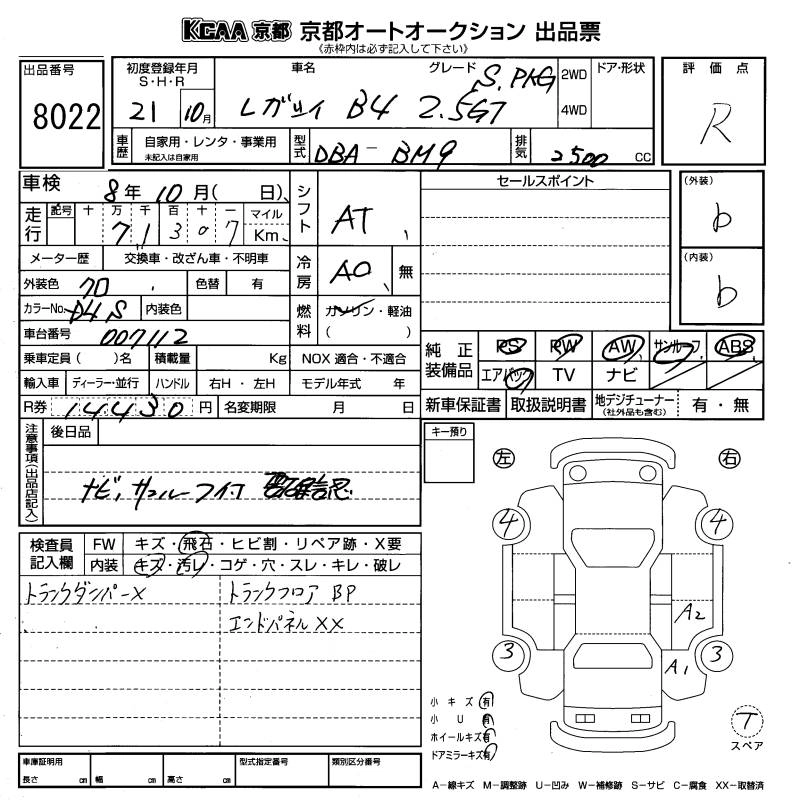 KCAA 京都 京都オートオークション 出品票
《赤枠内は必ず記入して下さい》
出品番号
8022
初度登録年月
S・H・R
21 10月
車名 グレード
レガシィ B4 2.5GT S.PKG
2WD
4WD
ドア・形状
評価点
R
車歴
自家用・レンタ・事業用
未記入は自家用
型式
DBA-BM9
排気
2500 CC
車検 8年 10月( 日)
走行
記号 十 万 千 百 十 一
7 1 3 0 7
マイル
Km
メーター歴 交換車・改ざん車・不明車
外装色 クロ 色替 有
カラーNo. D4S 内装色
車台番号 007112
乗車定員( )名 積載量 Kg
輸入車 ディーラー・並行 ハンドル 右H・左H
R券 14430円 名変期限 月 日
シフト
AT
冷房
AC 無
燃料
ガソリン・軽油
( )
NOX 適合・不適合
モデル年式 年
セールスポイント
(外装)
b
(内装)
b
純正装備品
PS PW AW サンルーフ ABS
エアバック TV ナビ
新車保証書 取扱説明書 地デジチューナー
(社外品も含む)
有・無
注意事項(出品店記入)
後日品
ナビ,サンルーフイワ
キー預り
左 右
検査員記入欄
FW キズ・飛石・ヒビ割・リペア跡・X要
内装 キズ・汚レ・コゲ・穴・スレ・キレ・破レ
トランクダンパーX トランクフロア BP
エンドパネル XX
4 4
A2
3 A1 3
小キズ 有
小U 有
ホイールキズ 有
ドアミラーキズ 有
T
スペア
車庫証明用
長さ cm 幅 cm 高さ cm
型式指定番号 類別区分番号
A-線キズ M-調整跡 U-凹み W-補修跡 S-サビ C-腐食 XX-取替済